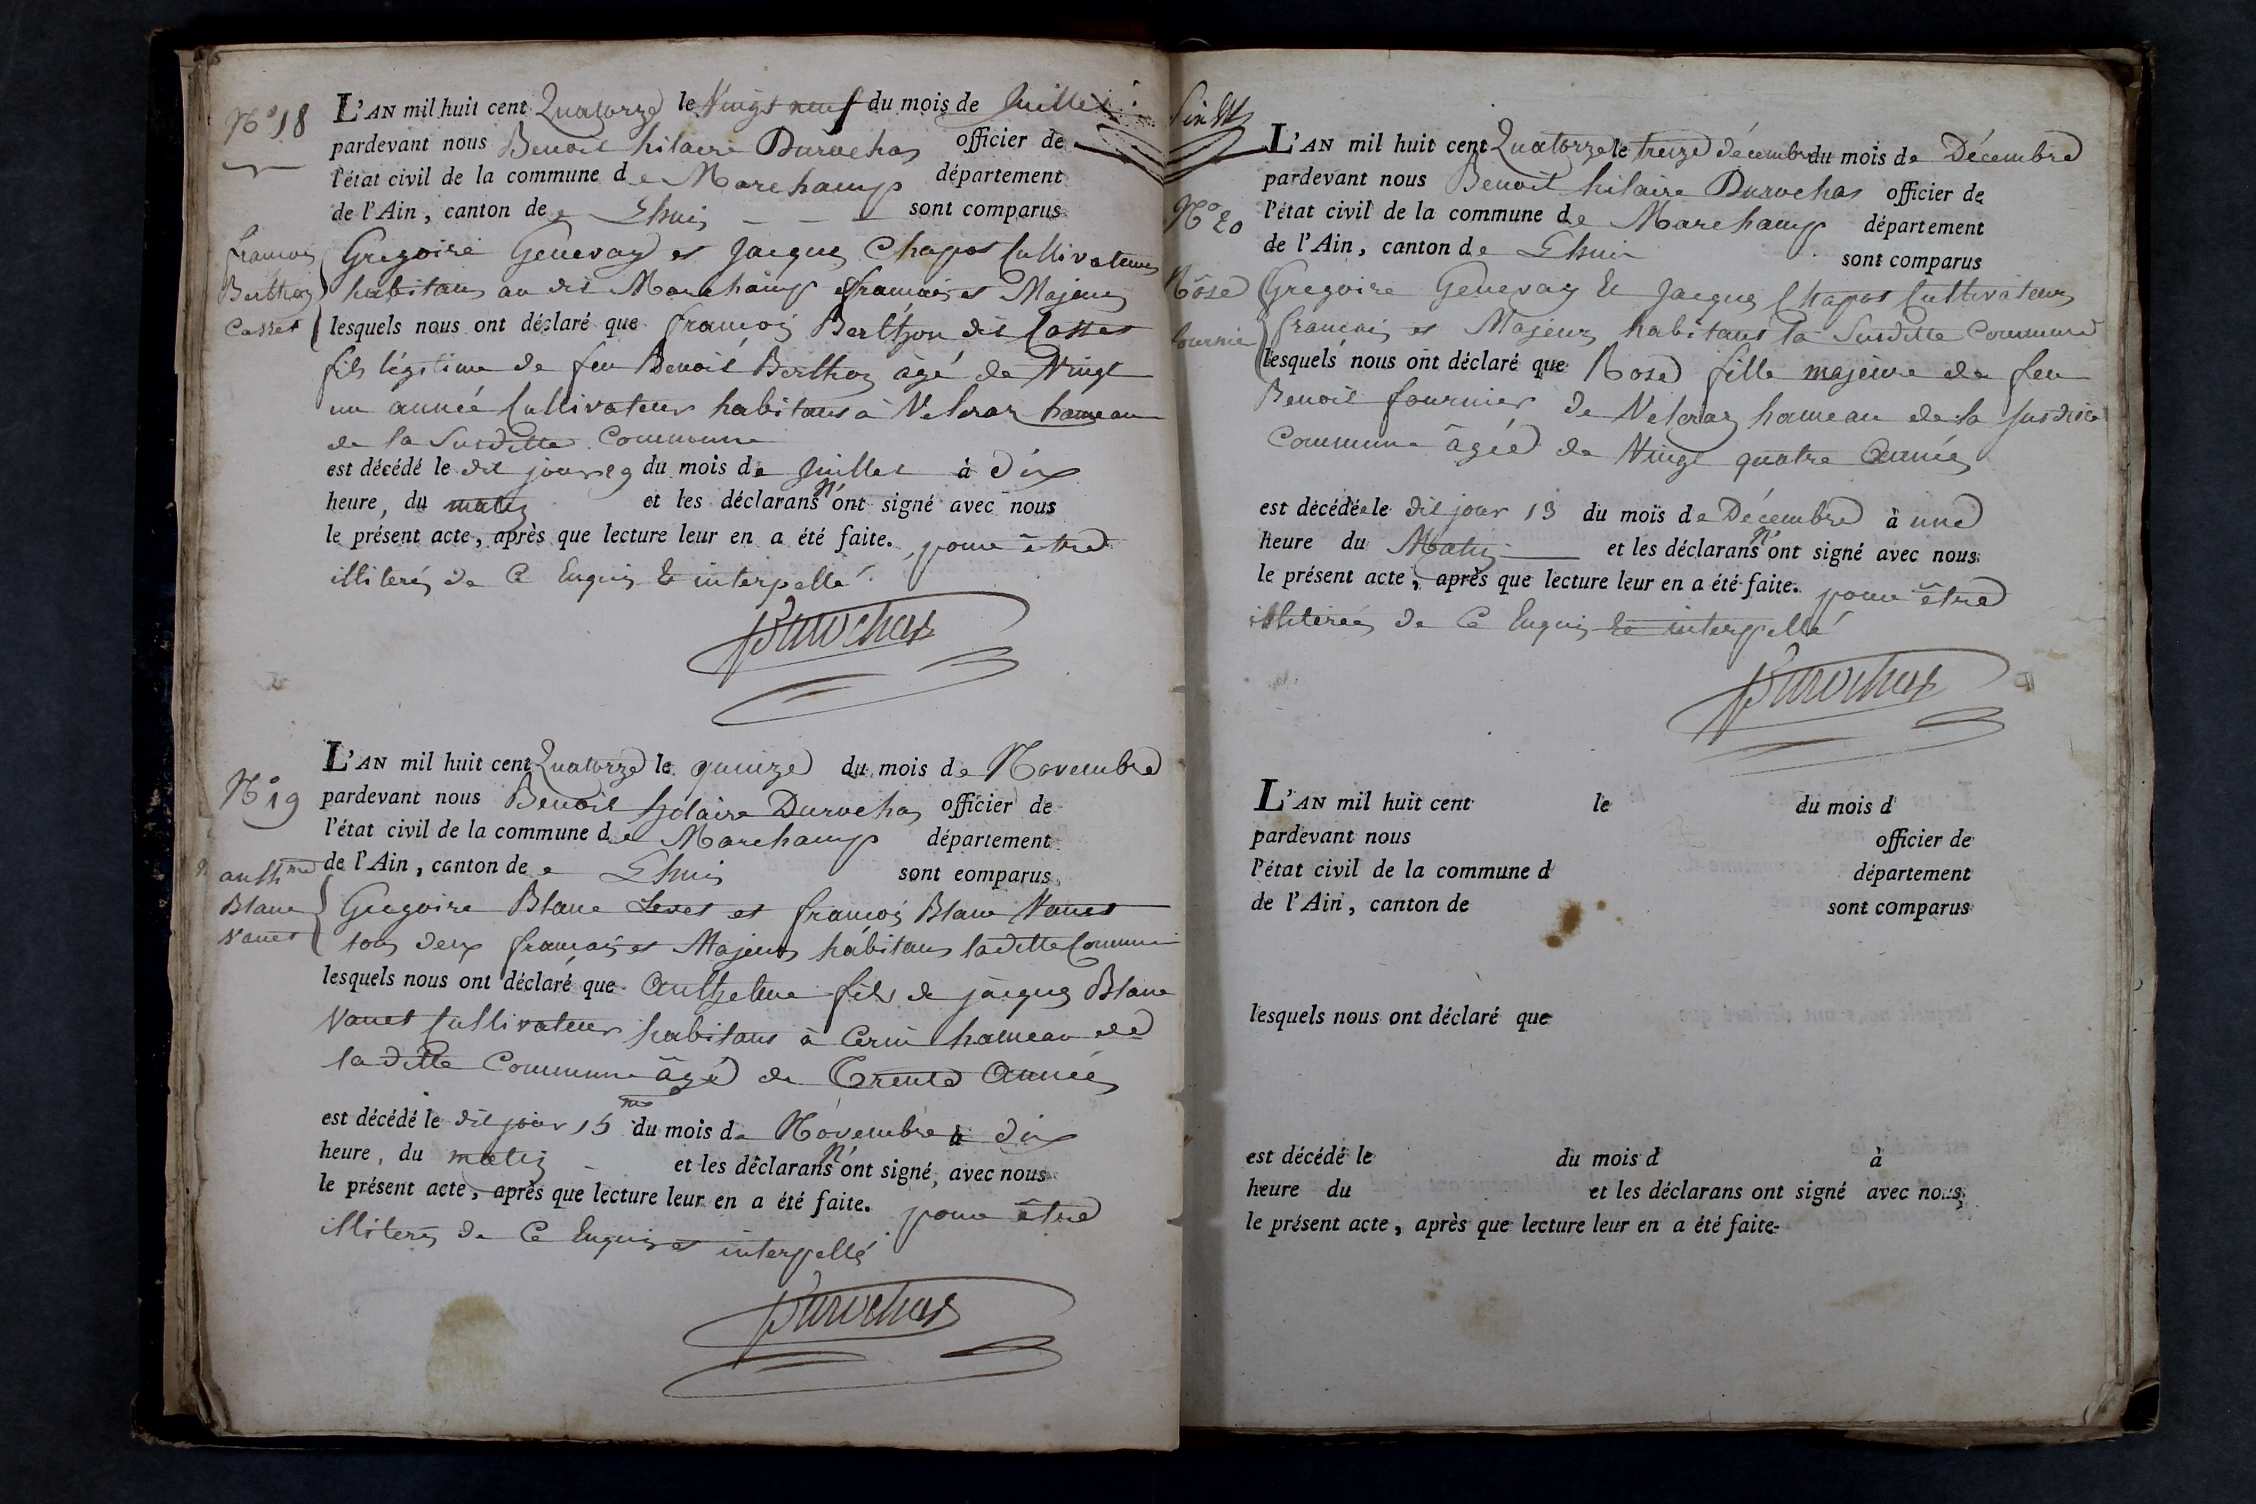 N° 18
L'AN mil huit cent Quatorze le Vingt neuf du mois de Juillet
pardevant nous Benoit hilaire Durochas officier de
l'état civil de la commune de Marchamp département
de l'Ain, canton de Lhuis sont comparus
francois
Berthon
Casset
Gregoire Genevay et Jacques Chapot Cultivateurs
habitans au dit Marchamp francais et Majeurs
lesquels nous ont déclaré que francois Berthon dit Casset
fils légitime de feu Benoit Berthon âgé de Vingt
un année Cultivateur habitans à Veloraz hameau
de la Susditte Commune
est décédé le dit jour 29 du mois de Juillet à dix
heure, du matin et les déclarans n'ont signé avec nous
le présent acte, après que lecture leur en a été faite. pour être
illiterés de Ce Enquis & interpellé
Durochas
N° 19
L'AN mil huit cent Quatorze le quinze du mois de Novembre
pardevant nous Benoit hilaire Durochas officier de
l'état civil de la commune de Marchamp département
de l'Ain, canton de Lhuis sont comparus
anthme
Blanc
Vanet
Gregoire Blanc et francois Blanc Vanet
tous deux francais et Majeurs habitans la ditte Commune
lesquels nous ont déclaré que Anthelme fils de jacques Blanc
Vanet Cultivateur habitans à Cerin hameau de
la ditte Commune âgé de Trente Années
est décédé le dit jour 15me du mois de Novembre à dix
heure, du matin et les déclarans n'ont signé avec nous
le présent acte, après que lecture leur en a été faite. pour être
illiterés de Ce Enquis et interpellé
Durochas
L'AN mil huit cent Quatorze le treize décembre du mois de Décembre
pardevant nous Benoit hilaire Durochas officier de
N° 20
l'état civil de la commune de Marchamp département
de l'Ain, canton de Lhuis sont comparus
Rose
fournier
Gregoire Genevay & Jacques Chapot Cultivateurs
francais et Majeurs habitans la Susditte Commune
lesquels nous ont déclaré que Rose fille majeure de feu
Benoit fournier de Veloraz hameau de la susditte
Commune âgée de Vingt quatre Années
est décédée le dit jour 13 du mois de Décembre à une
heure du Matin et les déclarans n'ont signé avec nous
le présent acte, après que lecture leur en a été faite. pour être
illiterés de Ce Enquis & interpellé
Durochas
L'AN mil huit cent le du mois d
pardevant nous officier de
l'état civil de la commune d département
de l'Ain, canton de sont comparus
lesquels nous ont déclaré que
est décédé le du mois d à
heure du et les déclarans ont signé avec nous
le présent acte, après que lecture leur en a été faite.